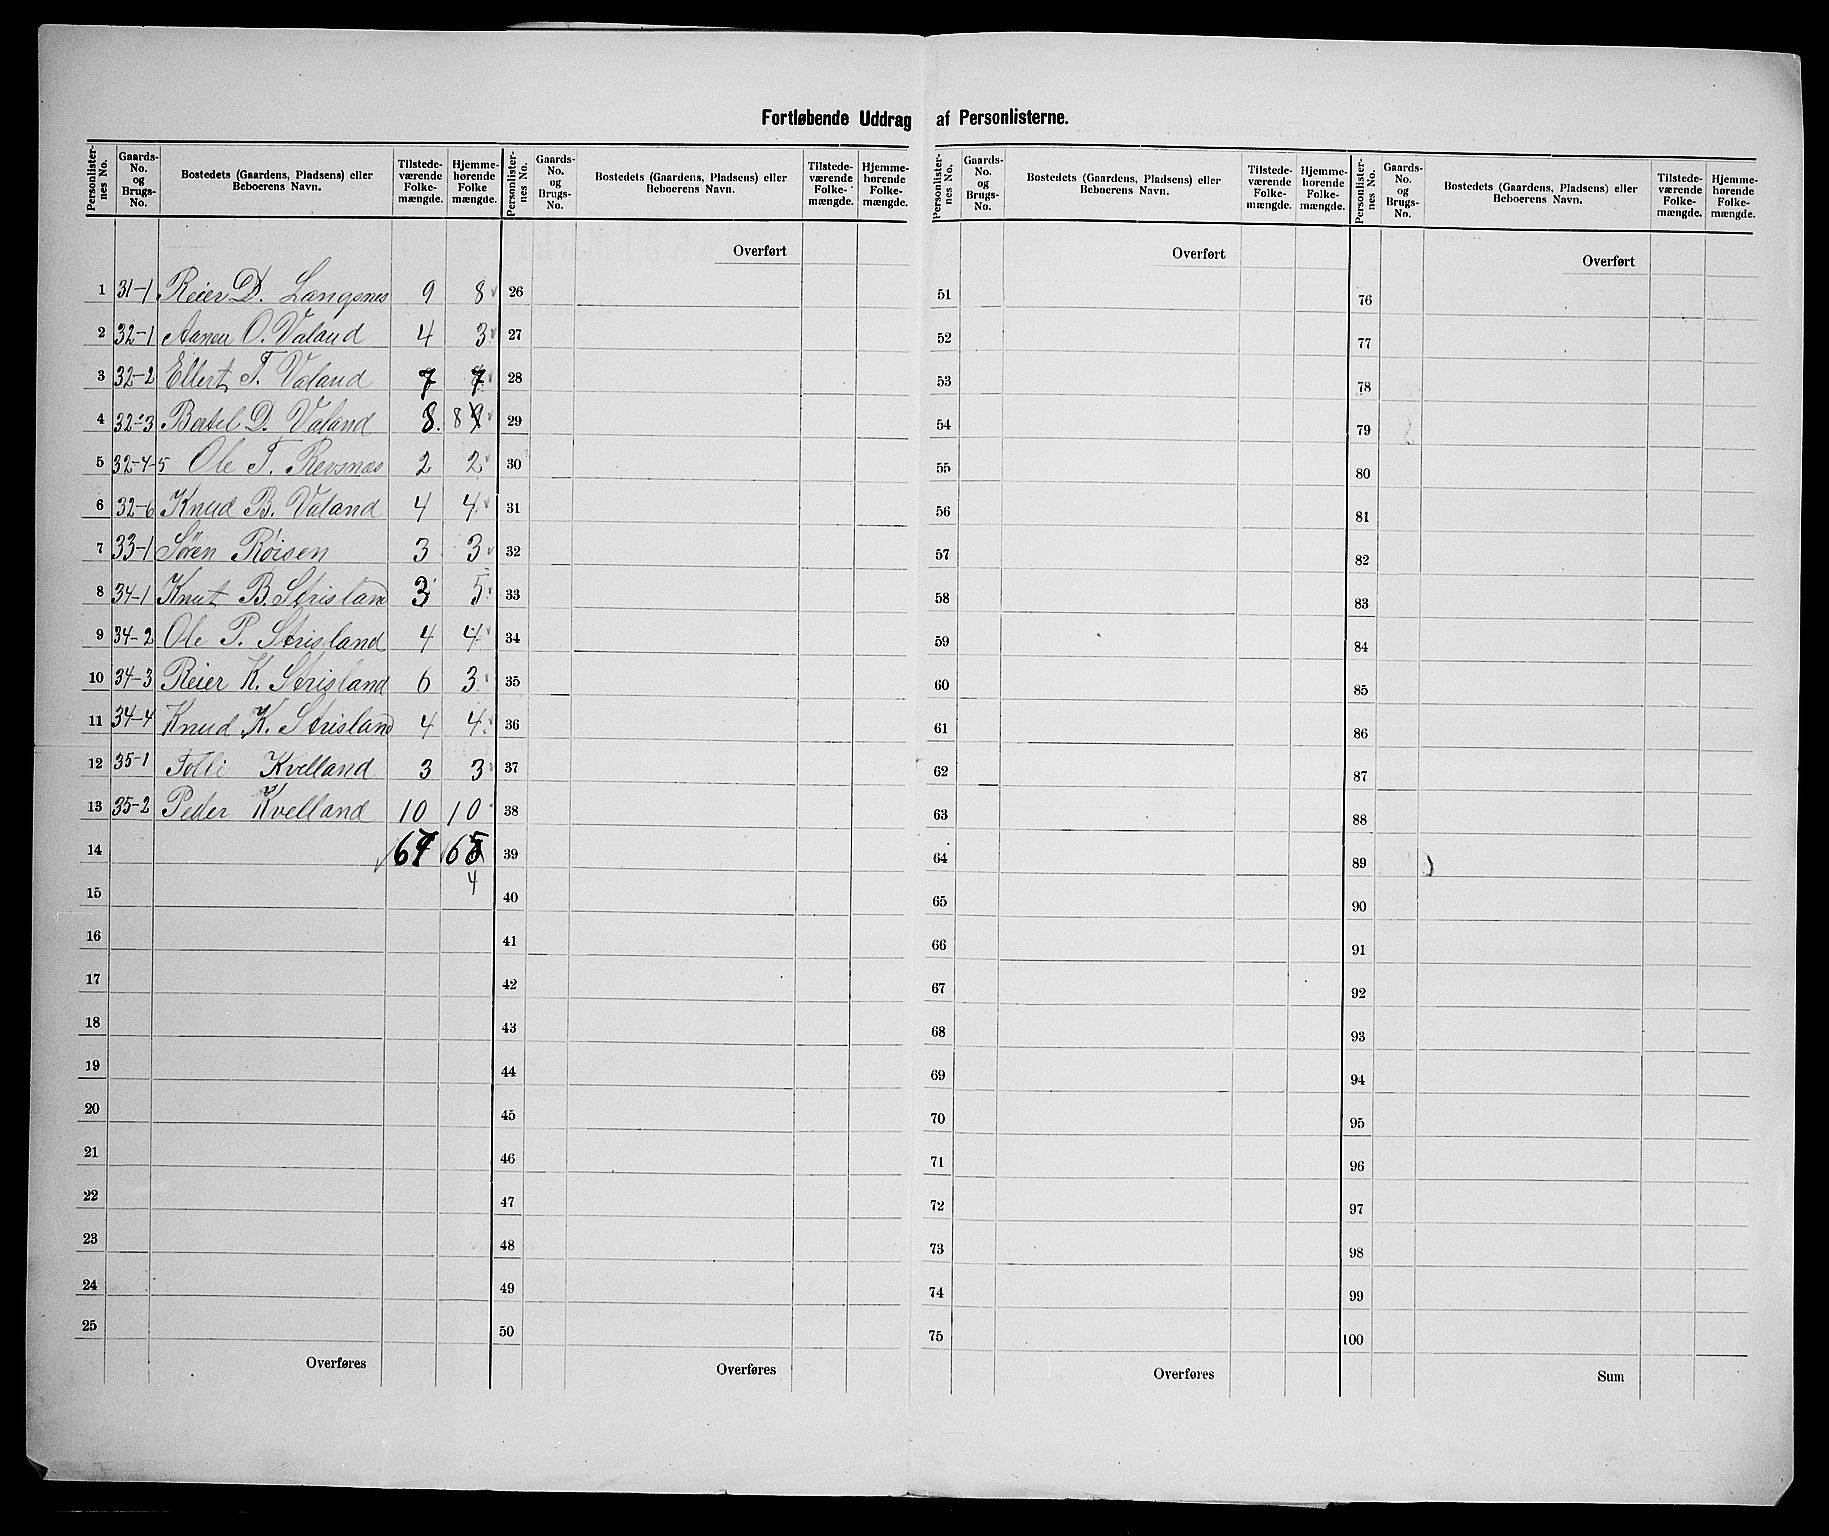 Fortløbende Uddrag af Personlisterne.
Personlister-nes No. | Gaards-No. og Brugs-No. | Bostedets (Gaardens, Pladsens) eller Beboerens Navn. | Tilstede-værende Folke-mængde. | Hjemme-hørende Folke mængde.
1 31-1 Reier D. Langsnes 9 8
2 32-1 Aanen O. Valand 4 3
3 32-2 Ellert T. Valand 7 7
4 32-3 Bertel D. Valand 8. 8 9
5 32-4-5 Ole T. Revsnæs 2 2
6 32-6 Knud B. Valand 4 4
7 33-1 Søren Röisen 3 3
8 34-1 Knut B. Strisland 3 5
9 34-2 Ole P. Strisland 4 4
10 34-3 Reier K. Strisland 6 3
11 34-4 Knud K. Strisland 4 4
12 35-1 Tolli Kvelland 3 3
13 35-2 Peder Kvelland 10 10
14 67 65
4
15
16
17
18
19
20
21
22
23
24
25
Overføres
Personlister-nes No. | Gaards-No. og Brugs-No. | Bostedets (Gaardens, Pladsens) eller Beboerens Navn. | Tilstede-værende Folke-mængde. | Hjemme-hørende Folke-mængde.
Overført
26
27
28
29
30
31
32
33
34
35
36
37
38
39
40
41
42
43
44
45
46
47
48
49
50
Overføres
Personlister-nes No. | Gaards-No. og Brugs-No. | Bostedets (Gaardens, Pladsens) eller Beboerens Navn. | Tilstede-værende Folke-mængde. | Hjemme-hørende Folke-mængde.
Overført
51
52
53
54
55
56
57
58
59
60
61
62
63
64
65
66
67
68
69
70
71
72
73
74
75
Overføres
Personlister-nes No. | Gaards-No. og Brugs-No. | Bostedets (Gaardens, Pladsens) eller Beboerens Navn. | Tilstede-værende Folke-mængde. | Hjemme-hørende Folke-mængde.
Overført
76
77
78
79
80
81
82
83
84
85
86
87
88
89
90
91
92
93
94
95
96
97
98
99
100
Sum